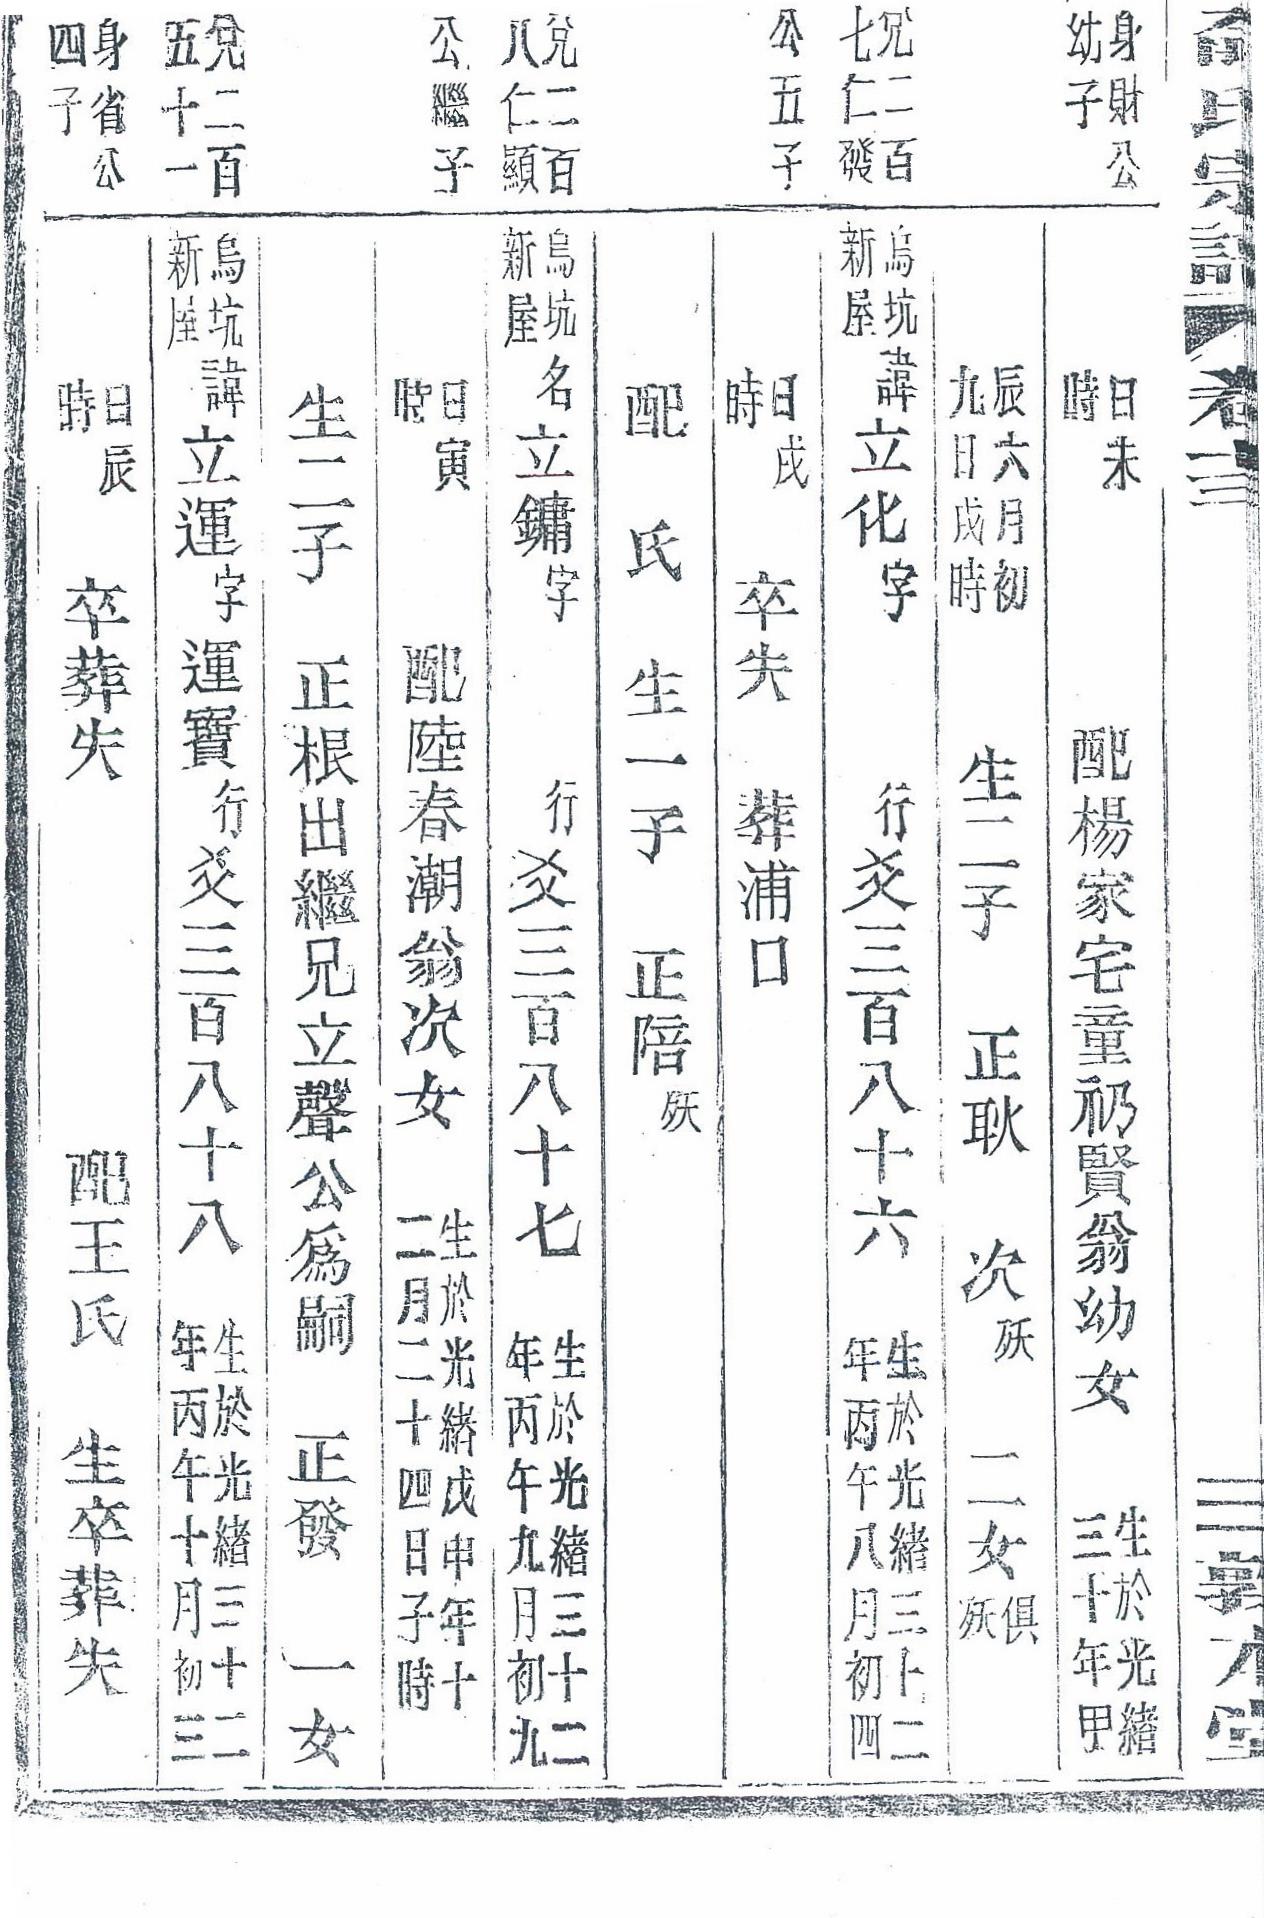 氏宗譜 卷三 三 敦本堂
身財公幼子
日未時 配楊家宅童礽賢翁幼女 生於光緒三十年甲
辰六月初九日戌時 生二子 正耿 次殀 二女俱殀
兄二百七仁發
烏坑新屋諱立化字 行爻三百八十六 生於光緒三十二年丙午八月初四
公五子
日戌時 卒失 葬浦口
配 氏 生一子 正陪殀
兌二百八仁顯
烏坑新屋名立鏞字 行爻三百八十七 生於光緒三十二年丙午九月初九
公繼子
日寅時 配陸春潮翁次女 生於光緒戊申年十二月二十四日子時
生二子 正根出繼兄立聲公為嗣 正發 一女
兌二百五十一
烏坑新屋諱立運字運寶行爻三百八十八 生於光緒三十二年丙午十月初三
身省公四子
日辰時 卒葬失 配王氏 生卒葬失